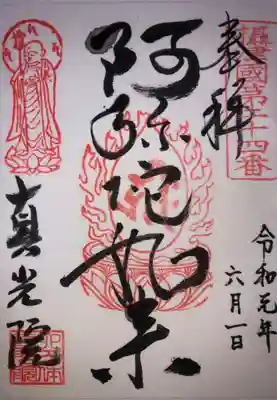 奉拝
令和元年
六月一日
阿弥陀如来
真光院